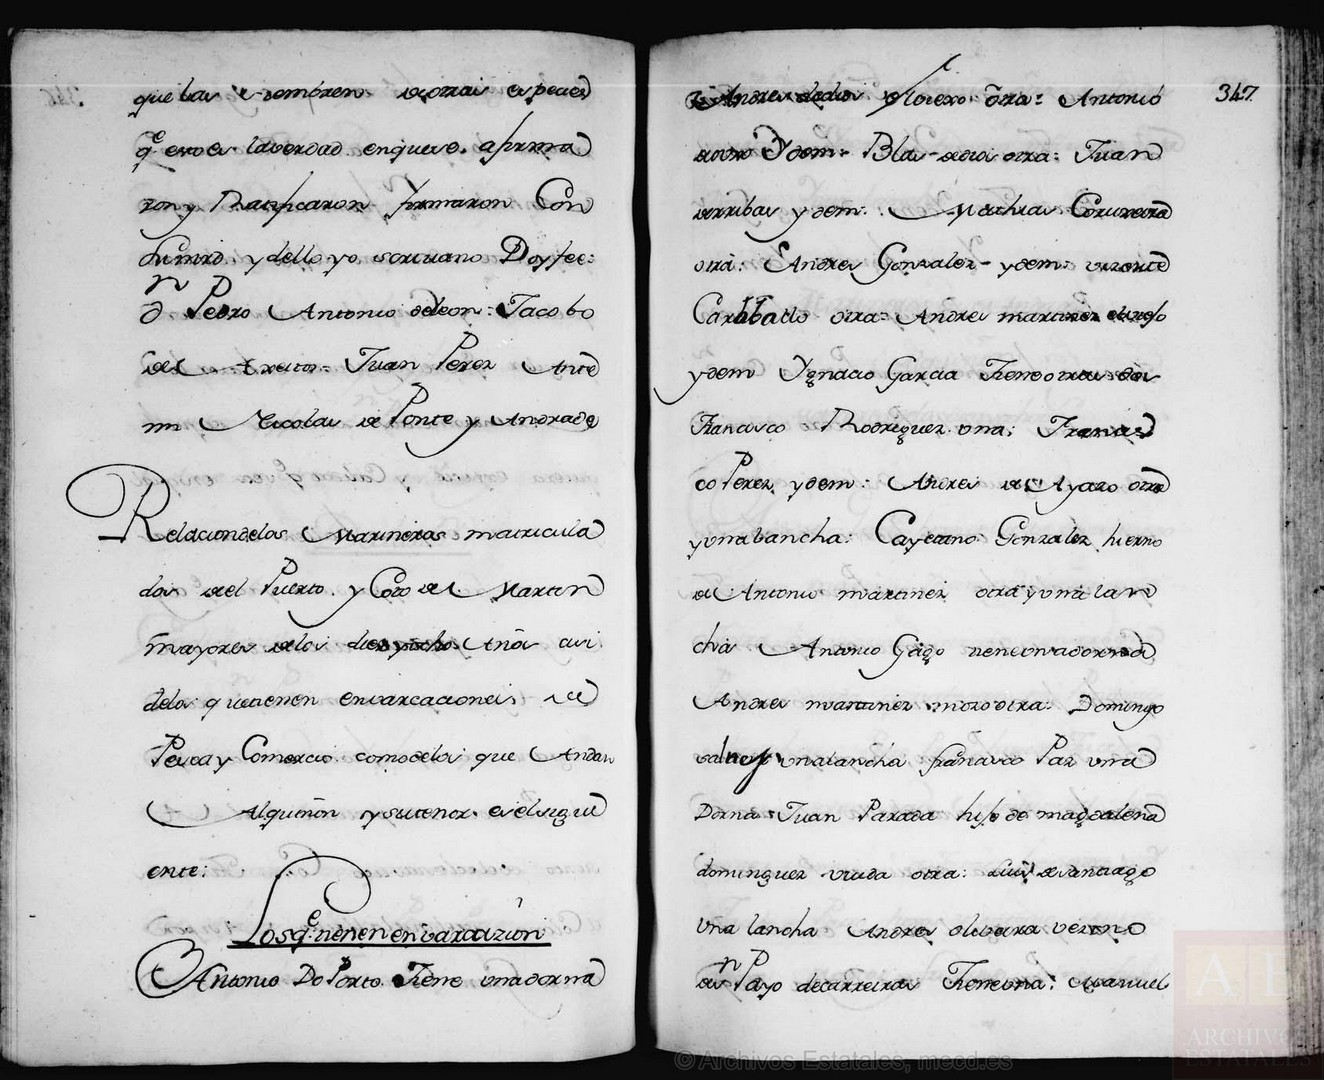 que las siembren de otras especies
q.e esto es la verdad en que se afirma
ron y Ratificaron firmaron Con
su mrd. y dello yo scriuano Doy fee:
D.n Pedro Antonio de leon: Jacobo
del Areiton: Juan Perez Ante
mi Nicolas de Ponte y Andrade
Relacion de los Marineros matricula
dos del Puerto y Coto de S. Martin
mayores de los dies y ocho Años asi
delos que tienen envarcaciones de
Pesca y Comercio como delos que Andan
A Alquiñon y su tenor es el sigui
ente:
Los q.e tienen envarcazion
Antonio Do Porto tiene una dorna
347
Andres de dios otra: Antonio
Ydem: Blas de dios otra: Juan
de rribas ydem: Mathias
otra: Andres Gonzalez ydem: Vizente
Carballo otra: Andres martinez
ydem Ygnacio Garcia Tiene otras dos
Francisco Rodriguez una; Francis
co Perez ydem: Andres de otra
y una lancha: Cayetano Gonzalez hierno
de Antonio martinez otra y una lan
cha Antonio Gago tiene una dorna
Andres martinez mozo otra: Domingo
una lancha francisco Paz una
Dorna Juan Parada hijo de magdalena
dominguez viuda otra: Luis de santiago
una lancha Andres oliveira vezino
de S.n Payo de carreiras Tiene una: Manuel
© Archivos Estatales, mecd.es
AE
ARCHIVOS
ESTATALES